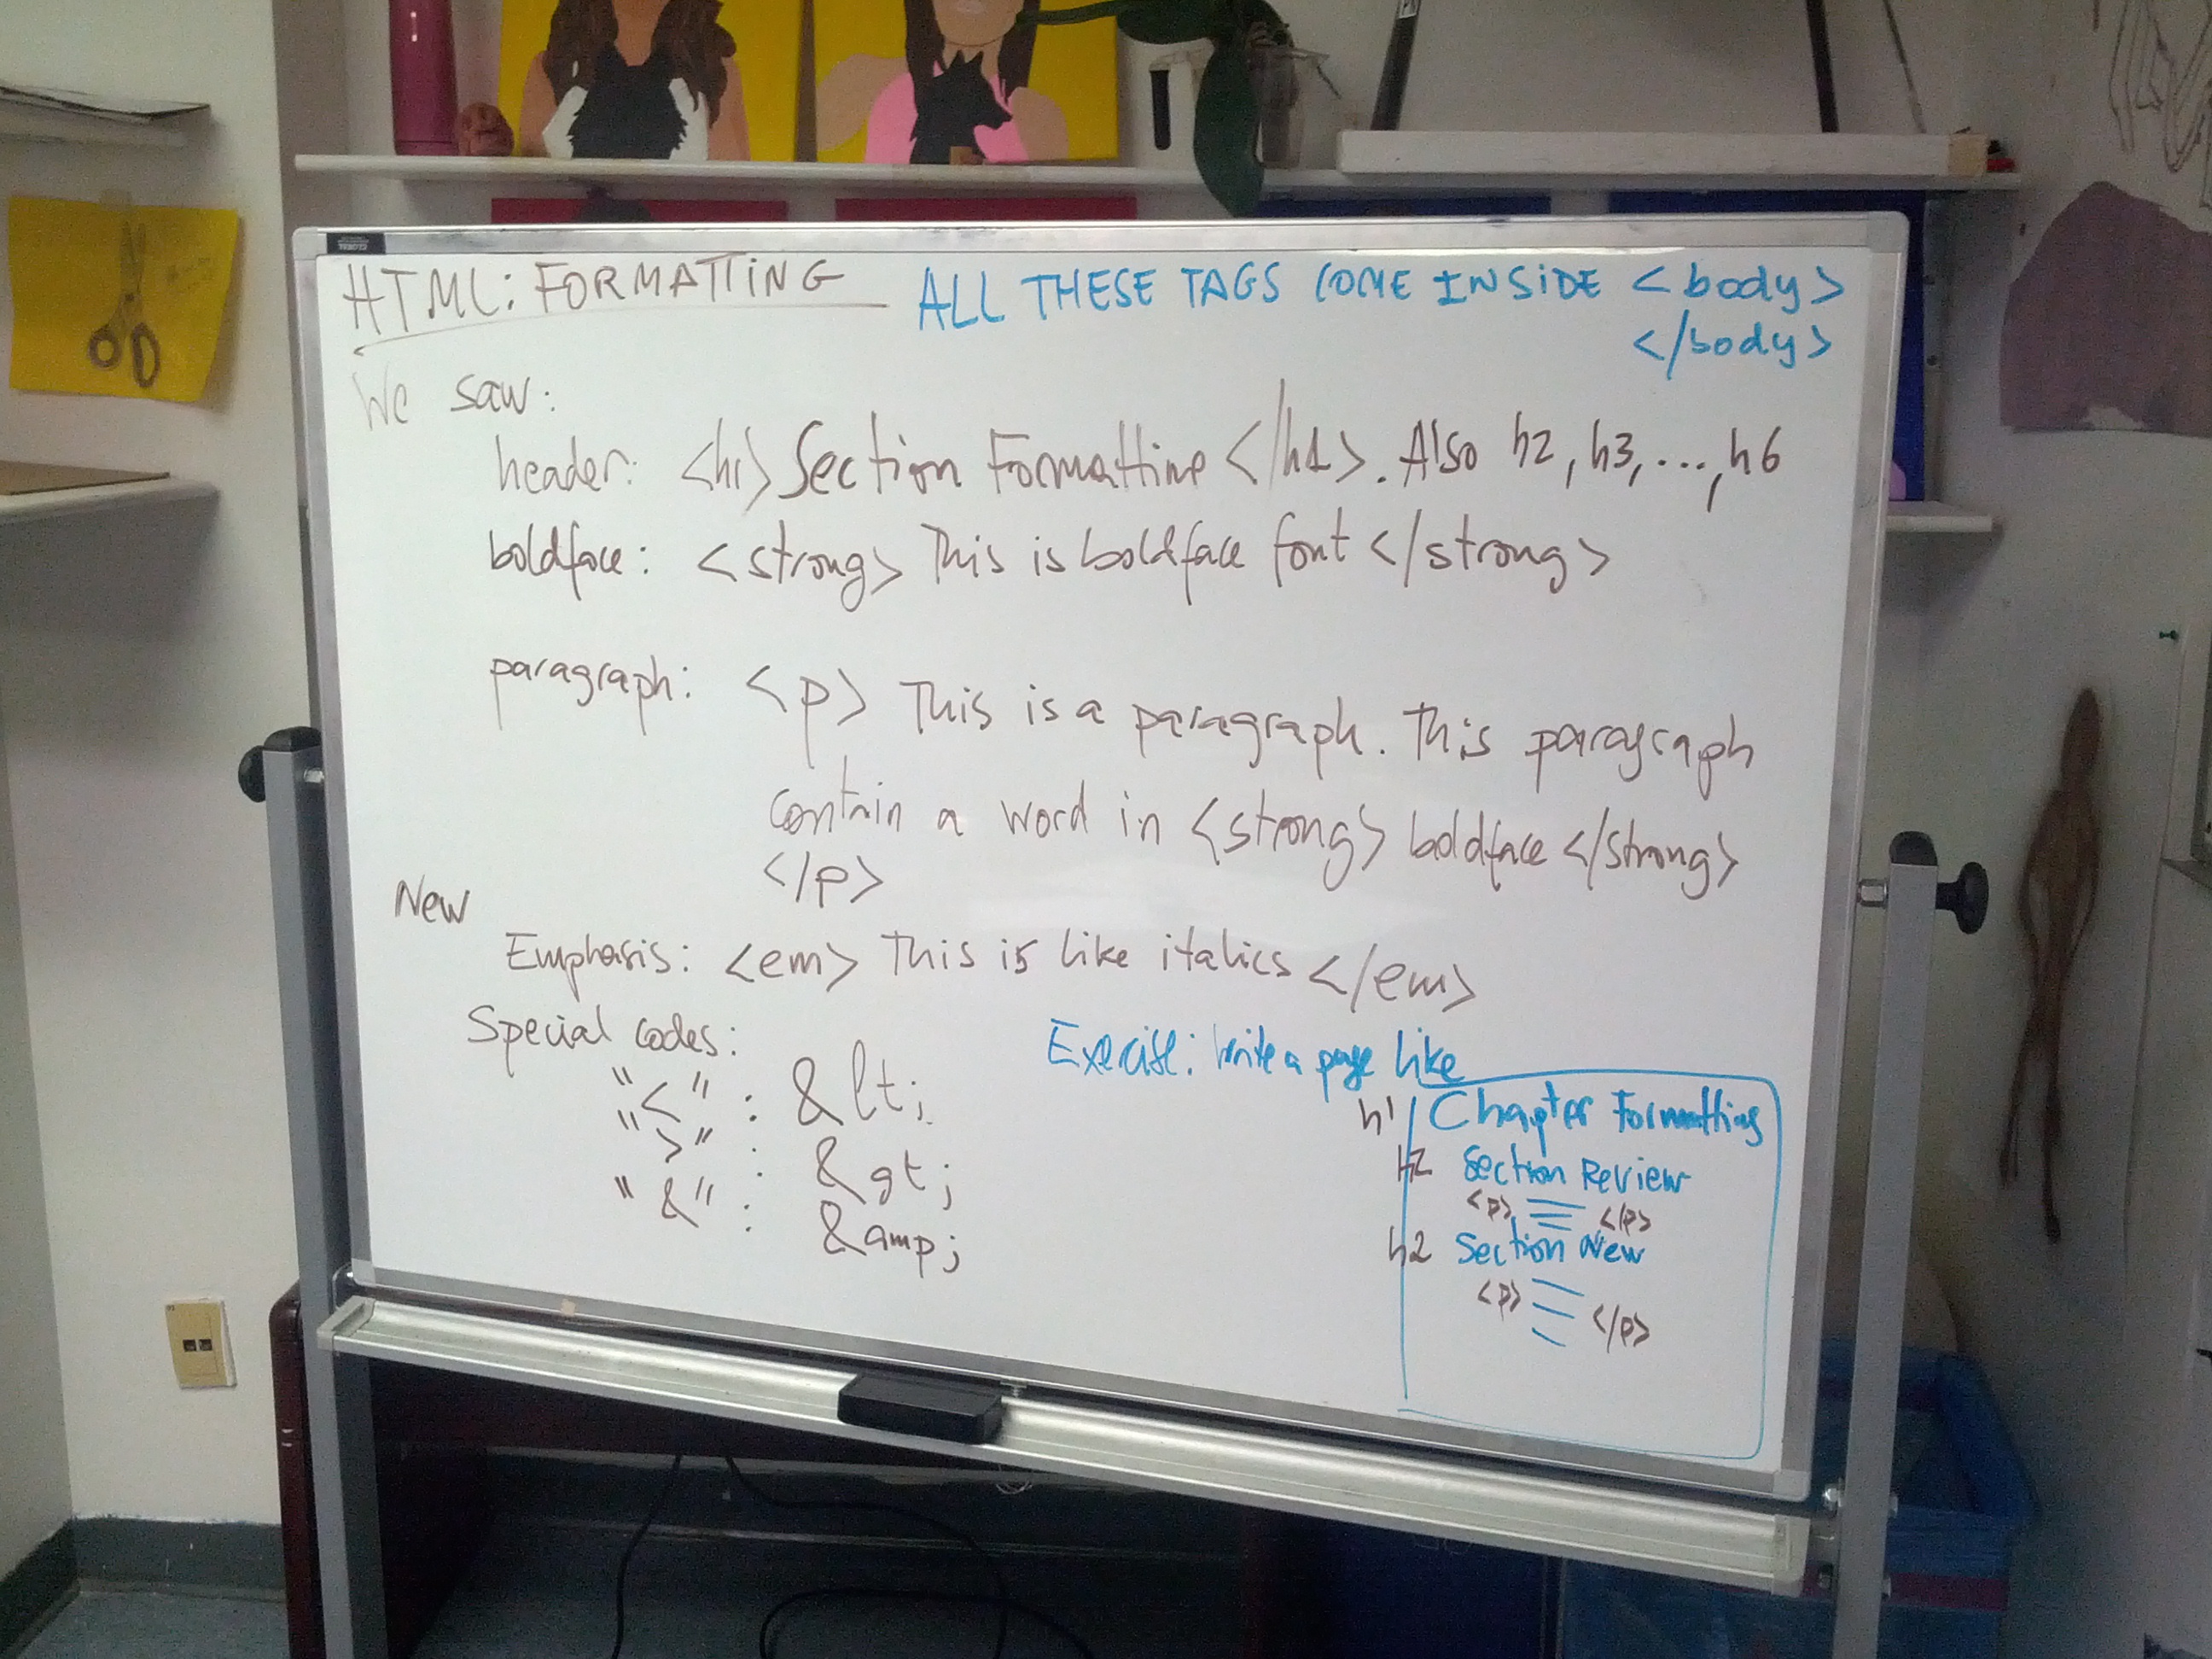 HTML: FORMATTING ALL THESE TAGS COME INSIDE <body>
</body>
We saw:
header: <h1> Section Formatting </h1>. Also h2, h3, ..., h6
boldface: <strong> This is boldface font </strong>
paragraph: <p> This is a paragraph. This paragraph
contain a word in <strong> boldface </strong>
</p>
New
Emphasis: <em> This is like italics </em>
Special codes:
"<" : &lt;
">" : &gt;
"&" : &amp;
Exercise: Write a page like
h1 Chapter Formatting
h2 Section Review
<p> </p>
h2 Section New
<p> </p>